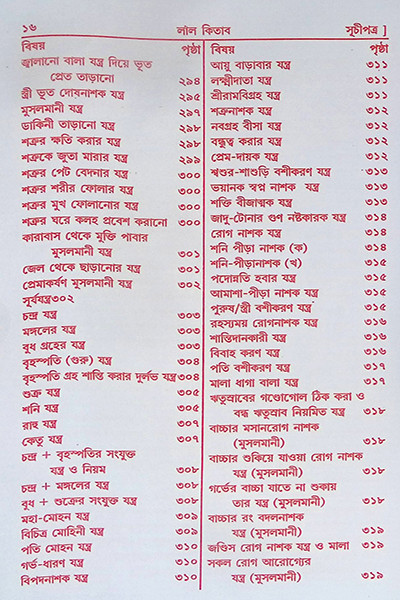 ১৬
লাল কিতাব
সূচীপত্র ]
বিষয় পৃষ্ঠা
জ্বালানো বালা যন্ত্র দিয়ে ভূত
প্রেত তাড়ানো ২৯৪
স্ত্রী ভূত দোষনাশক যন্ত্র ২৯৫
মুসলমানী যন্ত্র ২৯৭
ডাকিনী তাড়ানো যন্ত্র ২৯৮
শত্রুর ক্ষতি করার যন্ত্র ২৯৮
শত্রুকে জুতা মারার যন্ত্র ২৯৯
শত্রুর পেট বেদনার যন্ত্র ৩০০
শত্রুর শরীর ফোলার যন্ত্র ৩০০
শত্রুর মুখ ফোলানোর যন্ত্র ৩০০
শত্রুর ঘরে কলহ প্রবেশ করানো ৩০০
কারাবাস থেকে মুক্তি পাবার
মুসলমানী যন্ত্র ৩০১
জেল থেকে ছাড়ানোর যন্ত্র ৩০১
প্রেমাকর্ষণ মুসলমানী যন্ত্র ৩০২
সূর্যযন্ত্র৩০২
চন্দ্র যন্ত্র ৩০৩
মঙ্গলের যন্ত্র ৩০৩
বুধ গ্রহের যন্ত্র ৩০৩
বৃহস্পতি (গুরু) যন্ত্র ৩০৪
বৃহস্পতি গ্রহ শান্তি করার দুর্লভ যন্ত্র ৩০৪
শুক্র যন্ত্র ৩০৫
শনি যন্ত্র ৩০৫
রাহু যন্ত্র ৩০৭
কেতু যন্ত্র ৩০৭
চন্দ্র + বৃহস্পতির সংযুক্ত
যন্ত্র ও নিয়ম ৩০৮
চন্দ্র + মঙ্গলের যন্ত্র ৩০৮
বুধ + শুক্রের সংযুক্ত যন্ত্র ৩০৮
মহা-মোহন যন্ত্র ৩০৯
বিচিত্র মোহিনী যন্ত্র ৩০৯
পতি মোহন যন্ত্র ৩১০
গর্ভ-ধারণ যন্ত্র ৩১০
বিপদনাশক যন্ত্র ৩১০
বিষয় পৃষ্ঠা
আয়ু বাড়াবার যন্ত্র ৩১১
লক্ষ্মীদাতা যন্ত্র ৩১১
শ্রীরামবিগ্রহ যন্ত্র ৩১১
শত্রুনাশক যন্ত্র ৩১২
নবগ্রহ বীসা যন্ত্র ৩১২
বন্ধুত্ব করার যন্ত্র ৩১২
প্রেম-দায়ক যন্ত্র ৩১২
শ্বশুর-শাশুড়ি বশীকরণ যন্ত্র ৩১৩
ভয়ানক স্বপ্ন নাশক যন্ত্র ৩১৩
শক্তি বীজাত্মক যন্ত্র ৩১৩
জাদু-টোনার গুণ নষ্টকারক যন্ত্র ৩১৪
রোগ নাশক যন্ত্র ৩১৪
শনি পীড়া নাশক (ক) ৩১৪
শনি-পীড়ানাশক (খ) ৩১৫
পদোন্নতি হবার যন্ত্র ৩১৫
আমাশা-পীড়া নাশক যন্ত্র ৩১৫
পুরুষ/স্ত্রী বশীকরণ যন্ত্র ৩১৫
রহস্যময় রোগনাশক যন্ত্র ৩১৬
শান্তিদানকারী যন্ত্র ৩১৬
বিবাহ করণ যন্ত্র ৩১৬
পতি বশীকরণ যন্ত্র ৩১৭
মালা ধাগা বালা যন্ত্র ৩১৭
ঋতুস্রাবের গণ্ডোগোল ঠিক করা ও
বন্ধ ঋতুস্রাব নিয়মিত যন্ত্র ৩১৮
বাচ্চার মসানরোগ নাশক
(মুসলমানী) ৩১৮
বাচ্চার শুকিয়ে যাওয়া রোগ নাশক
যন্ত্র (মুসলমানী) ৩১৮
গর্ভের বাচ্চা যাতে না শুকায়
তার যন্ত্র (মুসলমানী) ৩১৮
বাচ্চার রং বদলনাশক
যন্ত্র (মুসলমানী) ৩১৯
জণ্ডিস রোগ নাশক যন্ত্র ও মালা ৩১৯
সকল রোগ আরোগ্যের
যন্ত্র (মুসলমানী) ৩১৯